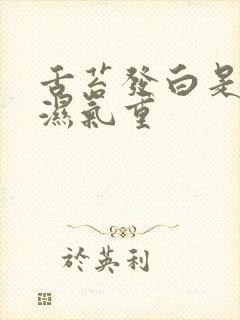 舌苔發白是
濕氣重
於英利